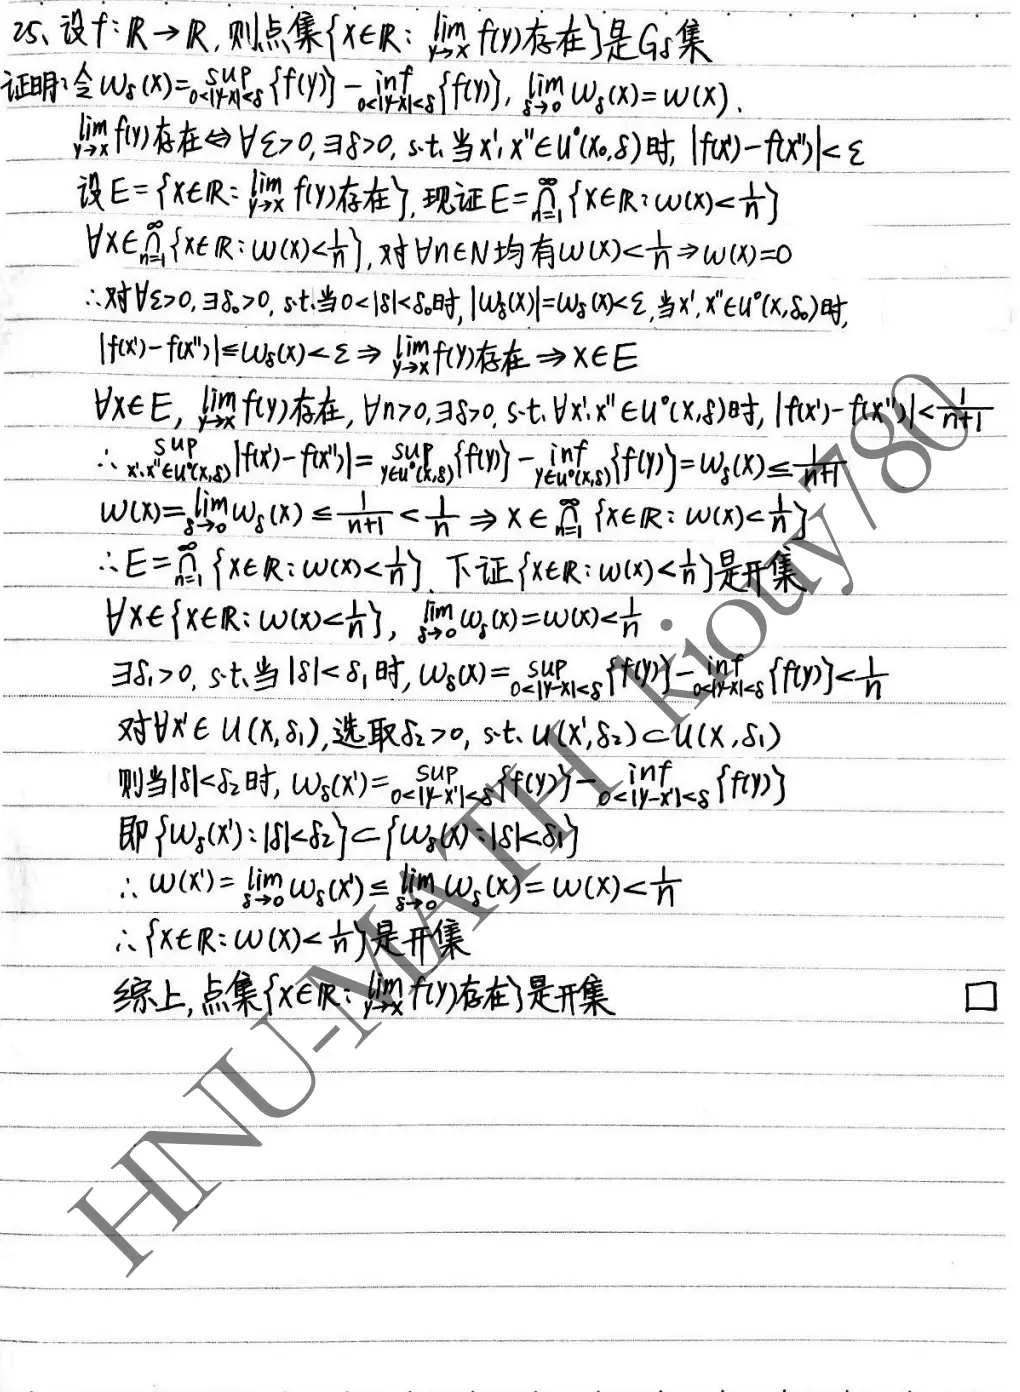 25、设f:ℝ→ℝ,则点集{x∈ℝ: lim_{y→x} f(y)存在}是G_δ集
证明:令ω_δ(x)=sup_{0<|y-x|<δ}{f(y)}-inf_{0<|y-x|<δ}{f(y)}, lim_{δ→0} ω_δ(x)=ω(x).
lim_{y→x} f(y)存在⇔∀ε>0,∃δ>0, s.t.当x',x''∈U°(x₀,δ)时, |f(x')-f(x'')|<ε
设E={x∈ℝ: lim_{y→x} f(y)存在},现证E=⋂_{n=1}^∞{x∈ℝ:ω(x)<1/n}
∀x∈⋂_{n=1}^∞{x∈ℝ:ω(x)<1/n},对∀n∈N均有ω(x)<1/n⇒ω(x)=0
∴对∀ε>0,∃δ₀>0, s.t.当0<|δ|<δ₀时,|ω_δ(x)|=ω_δ(x)<ε,当x',x''∈U°(x,δ₀)时,
|f(x')-f(x'')|≤ω_δ(x)<ε⇒lim_{y→x} f(y)存在⇒x∈E
∀x∈E, lim_{y→x} f(y)存在,∀n>0,∃δ>0, s.t.∀x',x''∈U°(x,δ)时,|f(x')-f(x'')|<1/(n+1)
∴sup_{x',x''∈U°(x,δ)}|f(x')-f(x'')|=sup_{y∈U°(x,δ)}{f(y)}-inf_{y∈U°(x,δ)}{f(y)}=ω_δ(x)≤1/(n+1)
ω(x)=lim_{δ→0}ω_δ(x)≤1/(n+1)<1/n⇒x∈⋂_{n=1}^∞{x∈ℝ:ω(x)<1/n}
∴E=⋂_{n=1}^∞{x∈ℝ:ω(x)<1/n}.下证{x∈ℝ:ω(x)<1/n}是开集
∀x∈{x∈ℝ:ω(x)<1/n}, lim_{δ→0}ω_δ(x)=ω(x)<1/n.
∃δ₁>0, s.t.当|δ|<δ₁时,ω_δ(x)=sup_{0<|y-x|<δ}{f(y)}-inf_{0<|y-x|<δ}{f(y)}<1/n
对∀x'∈U(x,δ₁),选取δ₂>0, s.t. U(x',δ₂)⊂U(x,δ₁)
则当|δ|<δ₂时,ω_δ(x')=sup_{0<|y-x'|<δ}{f(y)}-inf_{0<|y-x'|<δ}{f(y)}
即{ω_δ(x'):|δ|<δ₂}⊂{ω_δ(x):|δ|<δ₁}
∴ω(x')=lim_{δ→0}ω_δ(x')≤lim_{δ→0}ω_δ(x)=ω(x)<1/n
∴{x∈ℝ:ω(x)<1/n}是开集
综上,点集{x∈ℝ: lim_{y→x} f(y)存在}是开集 □
HNU-MATH kiouy780